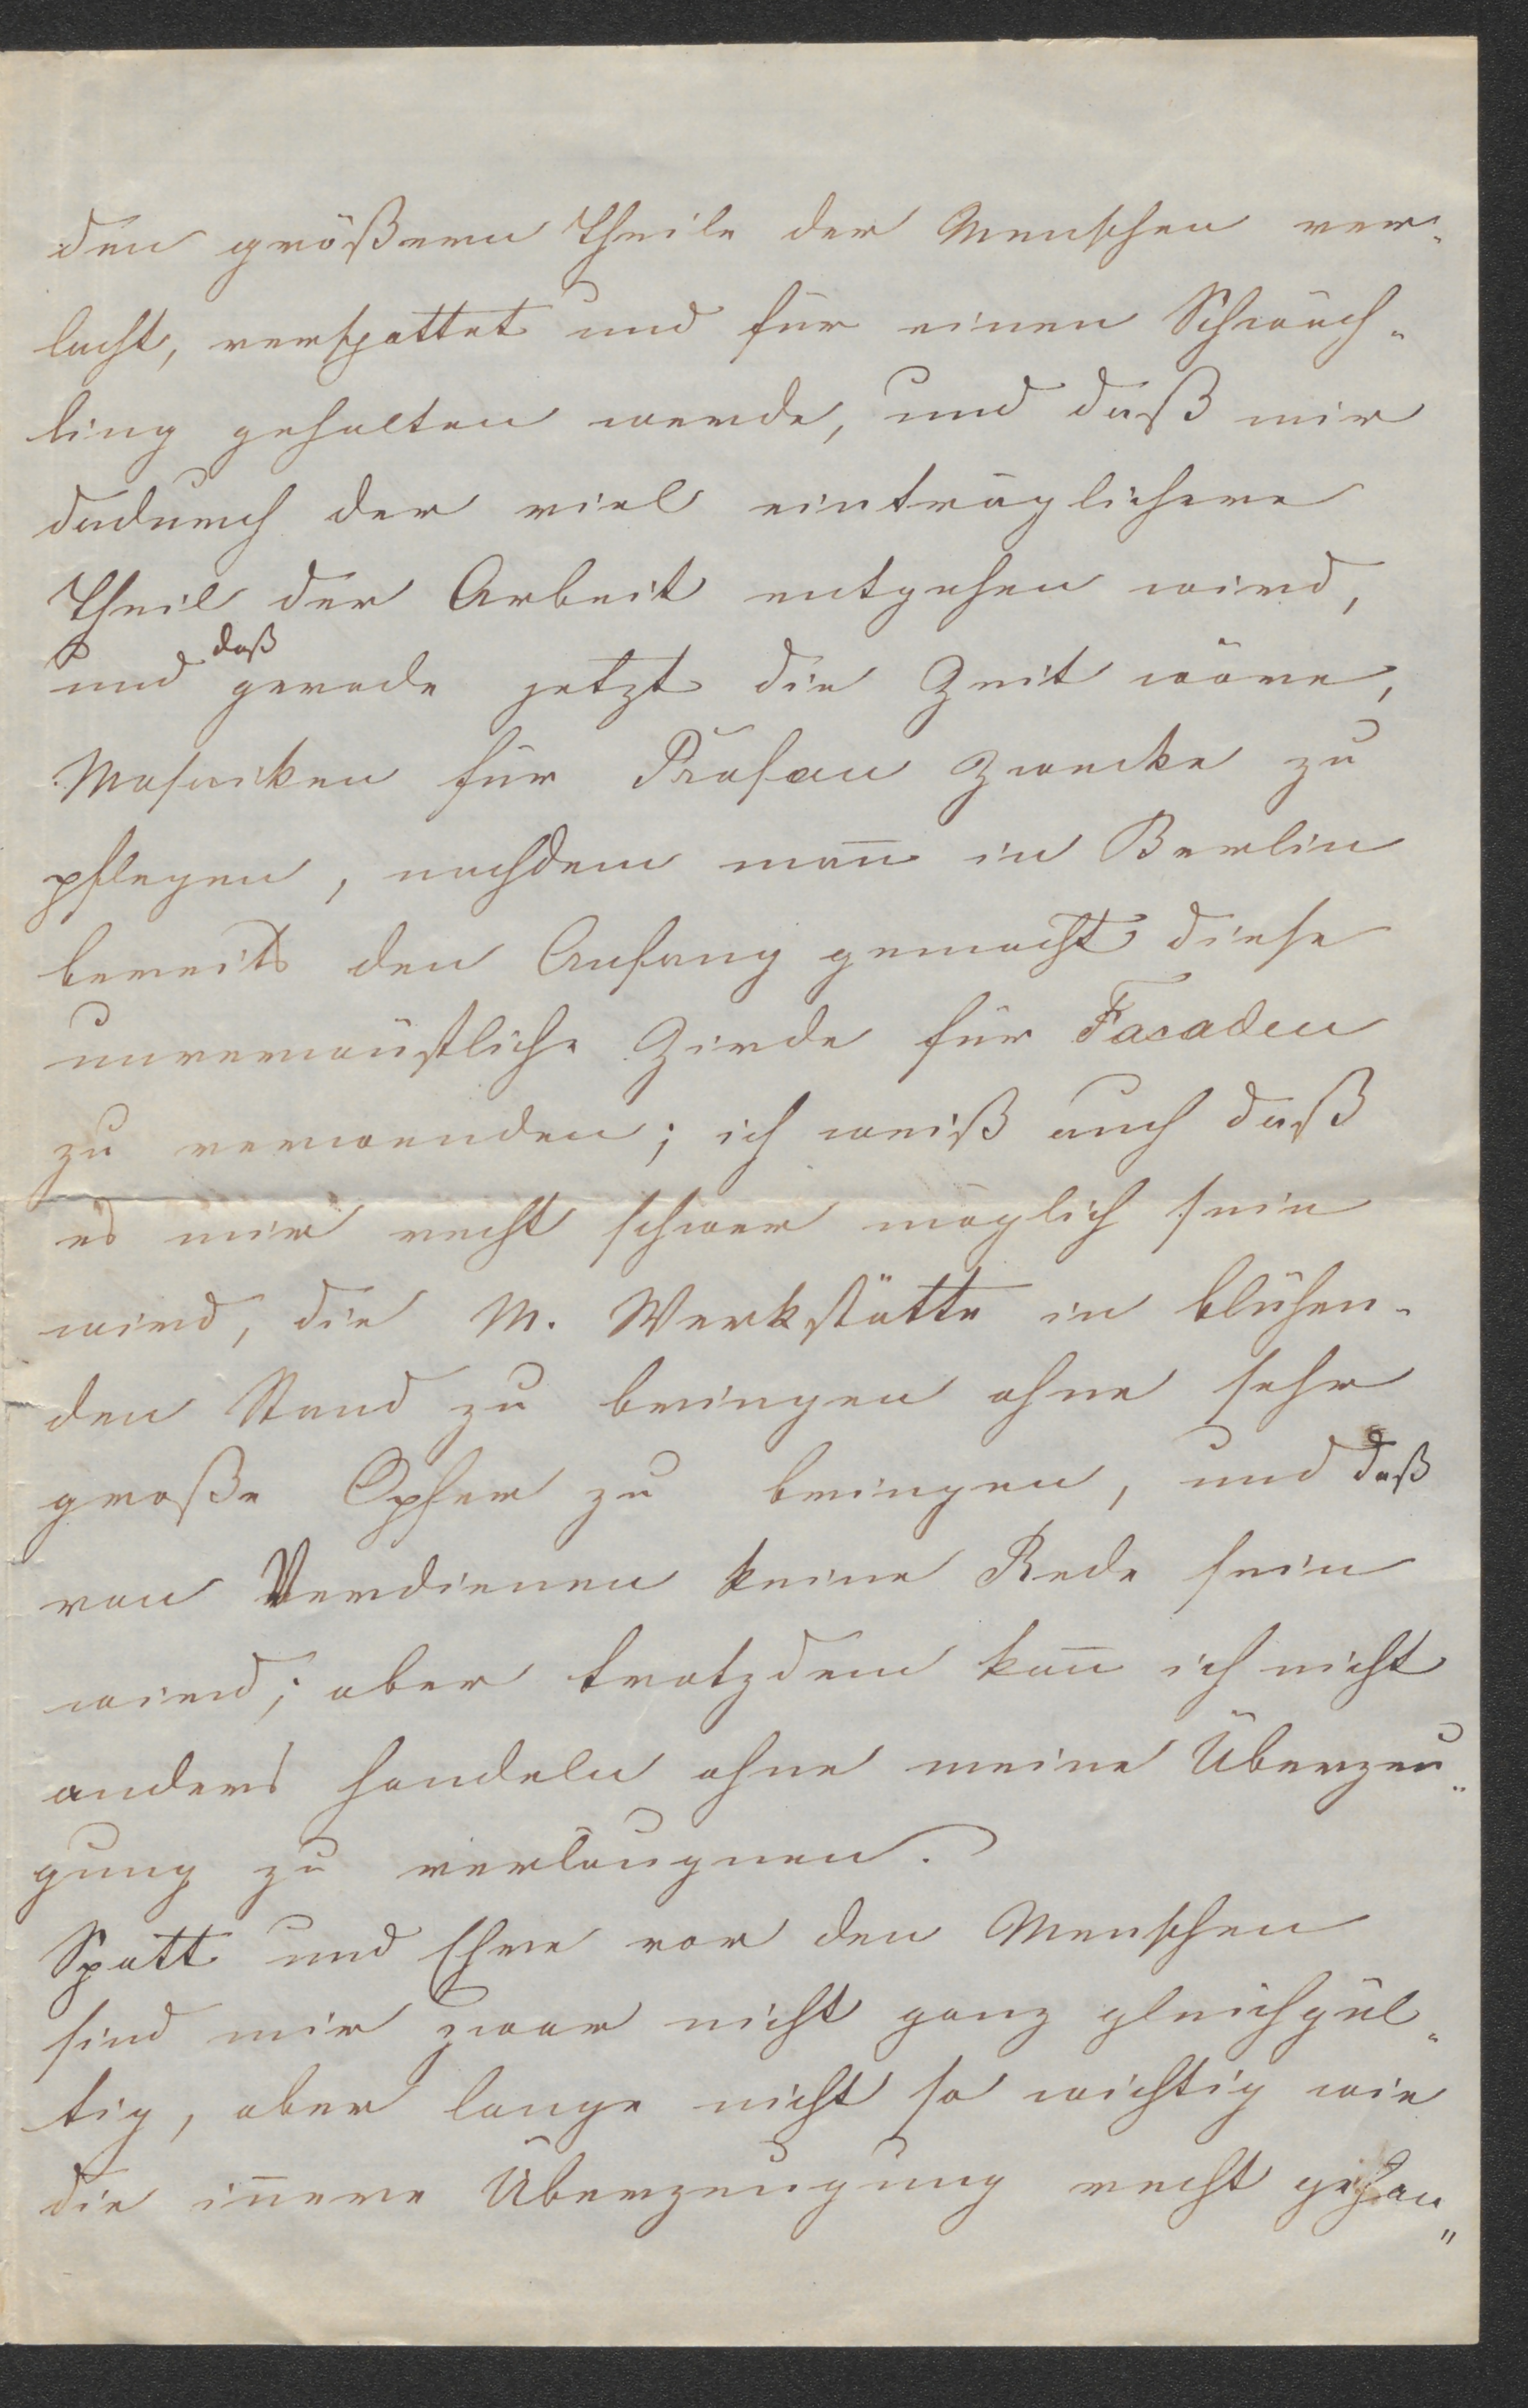 den größeren Theile der Menschen ver-
lacht, verspottet und für einen Schwäch-
ling gehalten werde, und daß mir
dadurch der viel einträglichere
Theil der Arbeit entgehen wird,
und daß gerade jetzt die Zeit wäre,
Mosaiken für Profan Zwecke zu
pflegen, nachdem man̄ in Berlin
bereits den Anfang gemacht diese
unverwüstliche Zierde für Facaden
zu verwenden; ich weiß auch daß
es mir recht schwer möglich sein
wird, die M. Werkstätte in blühen-
den Stand zu bringen ohne sehr
große Opfer zu bringen, und daß
von Verdienen keine Rede sein
wird; aber trotzdem kan̄ ich nicht
anders handeln ohne meine Überzeu-
gung zu verläugnen.
Spott und Ehre vor den Menschen
sind mir zwar nicht ganz gleichgül-
tig, aber lange nicht so wichtig wie
die in̄ere Überzeugung recht gehan-